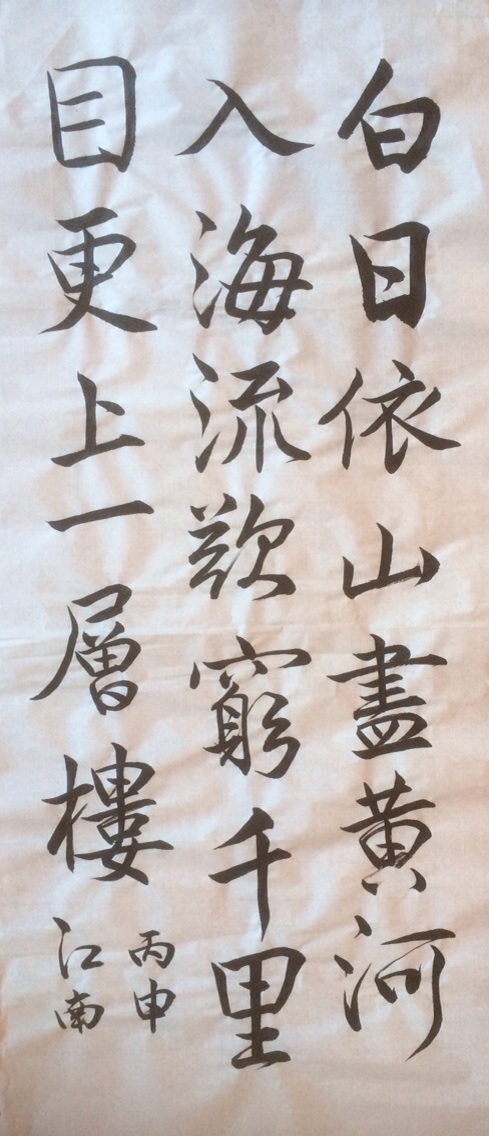 白日依山盡黄河
入海流欲窮千里
目更上一層樓
丙申
江南